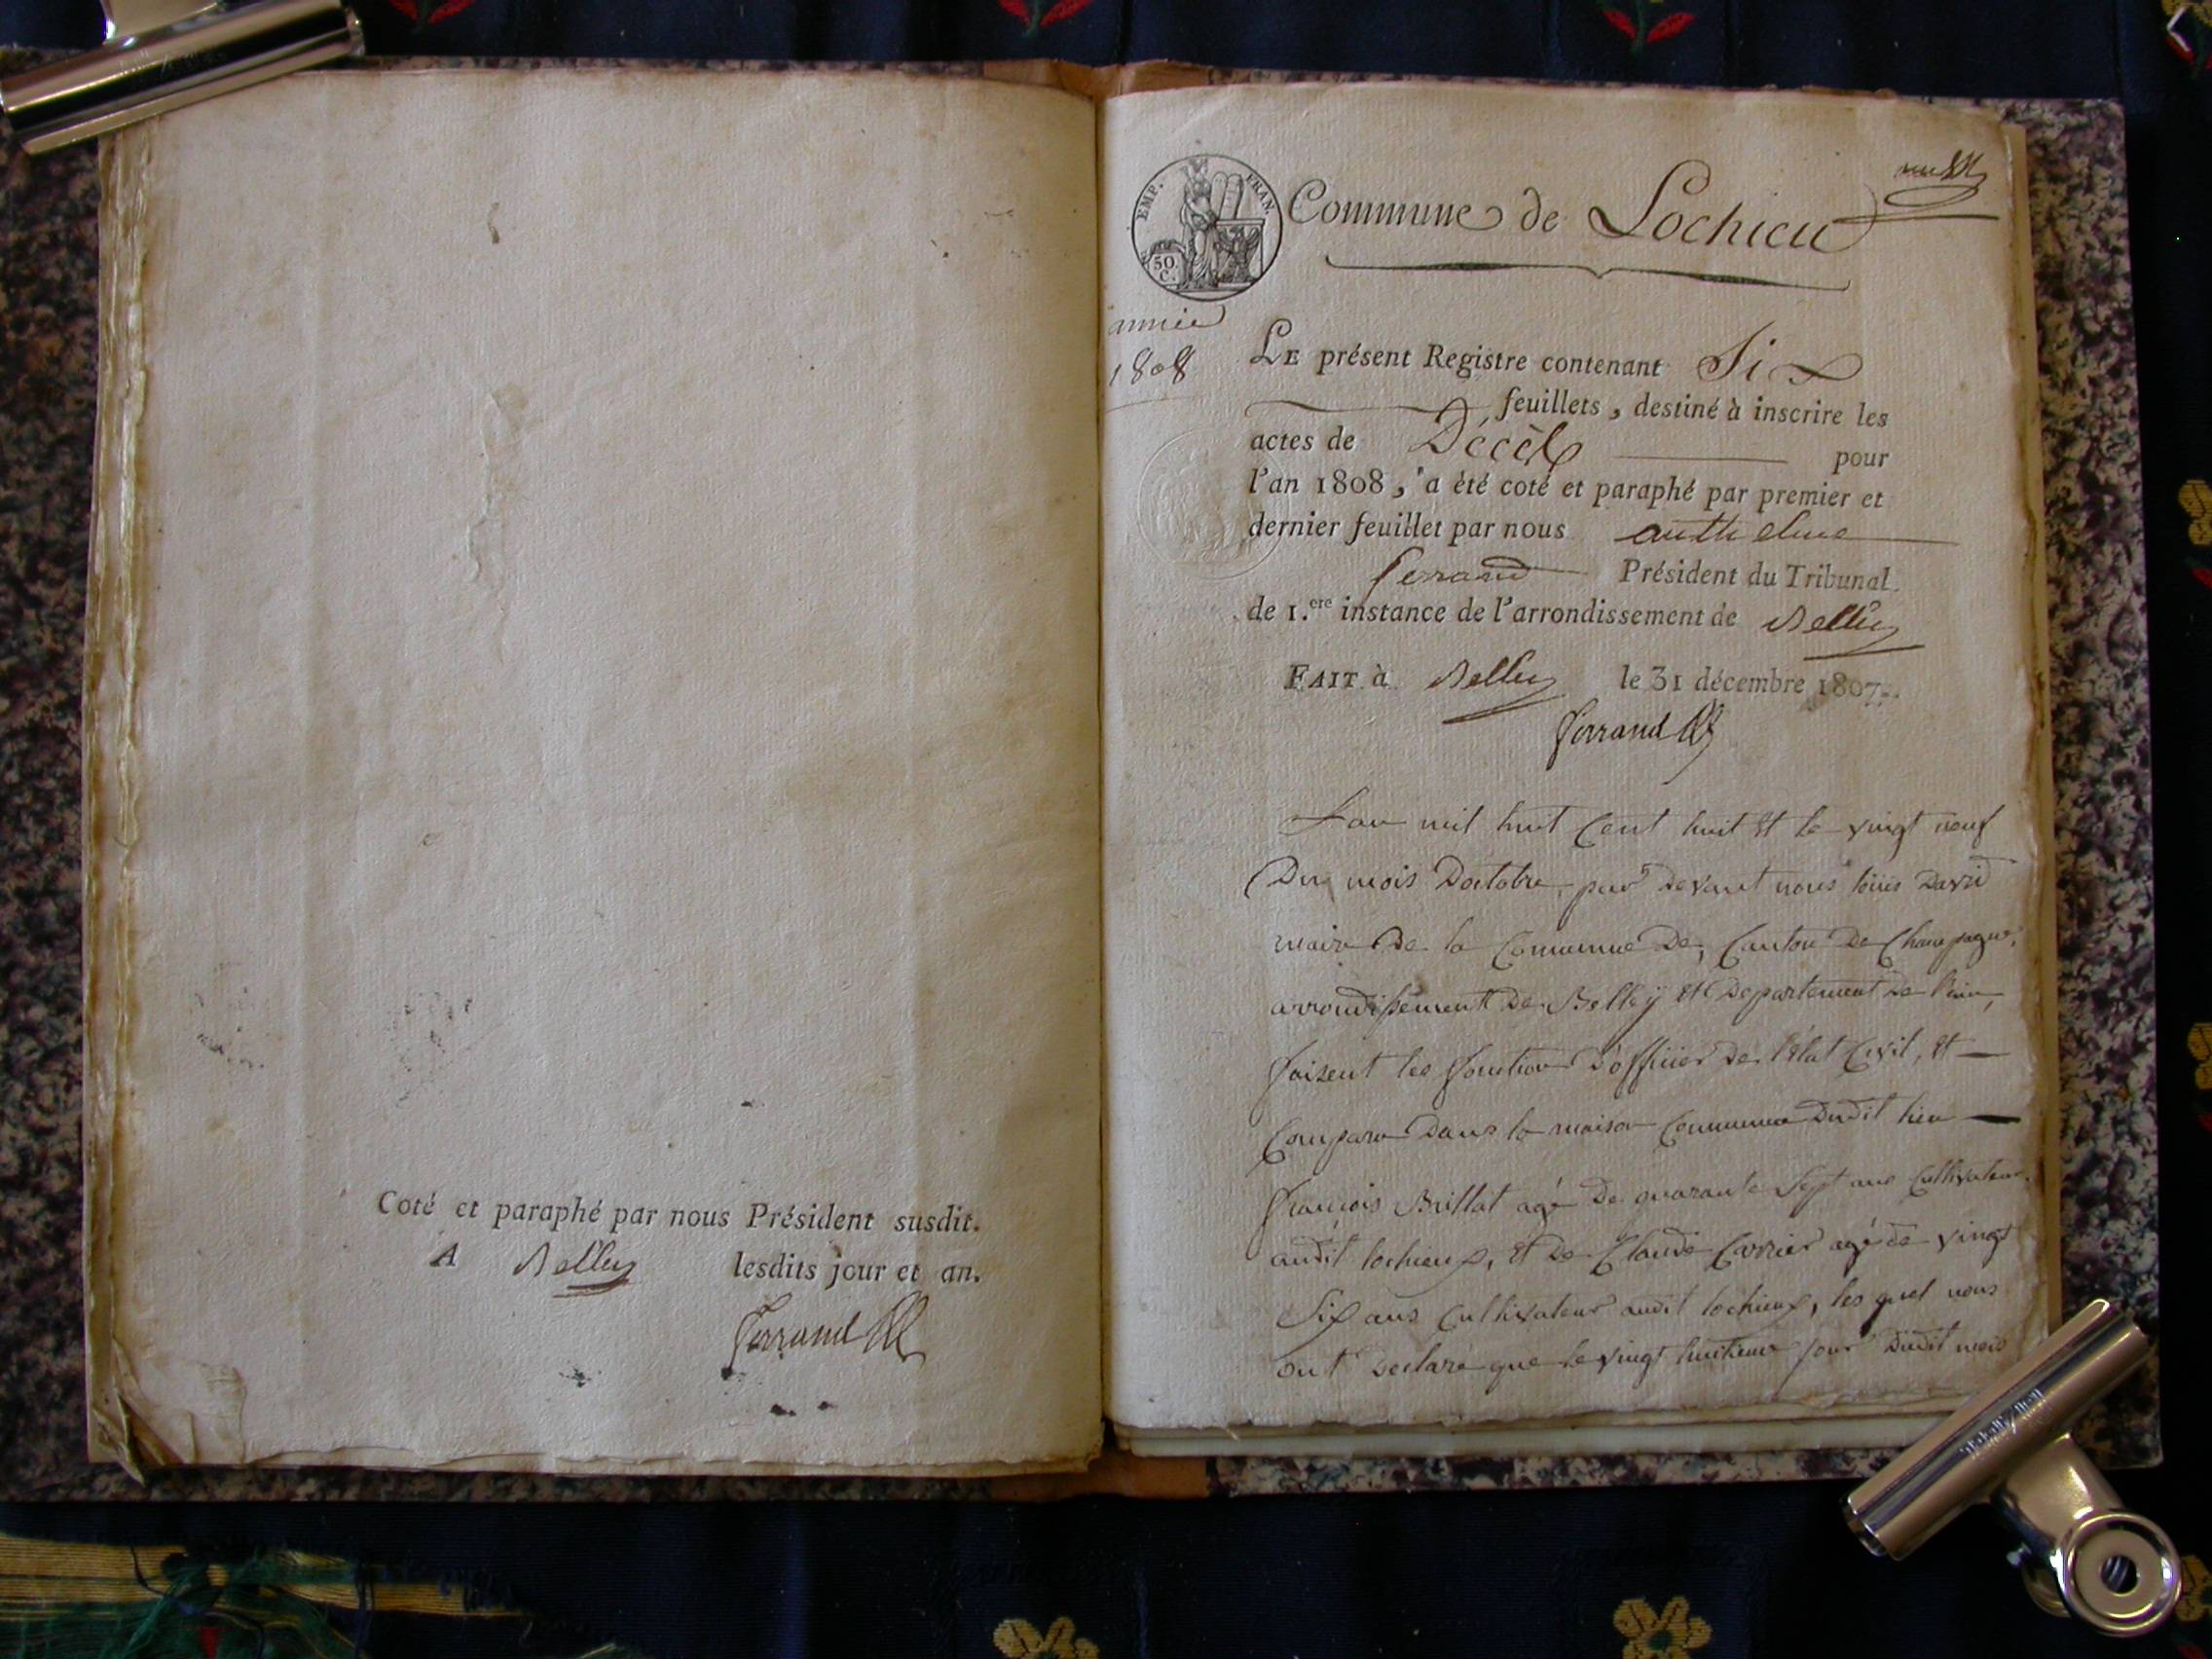 Coté et paraphé par nous Président susdit.
A Belley lesdits jour et an.
Ferrand
EMP. FRAN.
50 C.
Commune de Lochieu
année
1808
LE présent Registre contenant Six
feuillets, destiné à inscrire les
actes de Décès pour
l'an 1808, a été coté et paraphé par premier et
dernier feuillet par nous anthelme
ferrand Président du Tribunal
de 1.ere instance de l'arrondissement de Belley
FAIT à Belley le 31 décembre 1807.
Ferrand
L'an mil huit Cent huit et le vingt neuf
Du mois Doctobre, par devant nous loüis David
maire De la Commune De, Canton De Champagne,
arrondissement De Belleÿ et Departement De l'ain,
faisent les fonction D'officier De l'état Civil, et
Comparu Dans la maison Commune Dudit lieu
françois Brillat agé De quarante Sept ans Cultivateur
audit lochieux, et De Claude Carrier agé de vingt
Six ans Cultivateur audit lochieux, les quel nous
ont declaré que le vingt huitieme jour Dudit mois